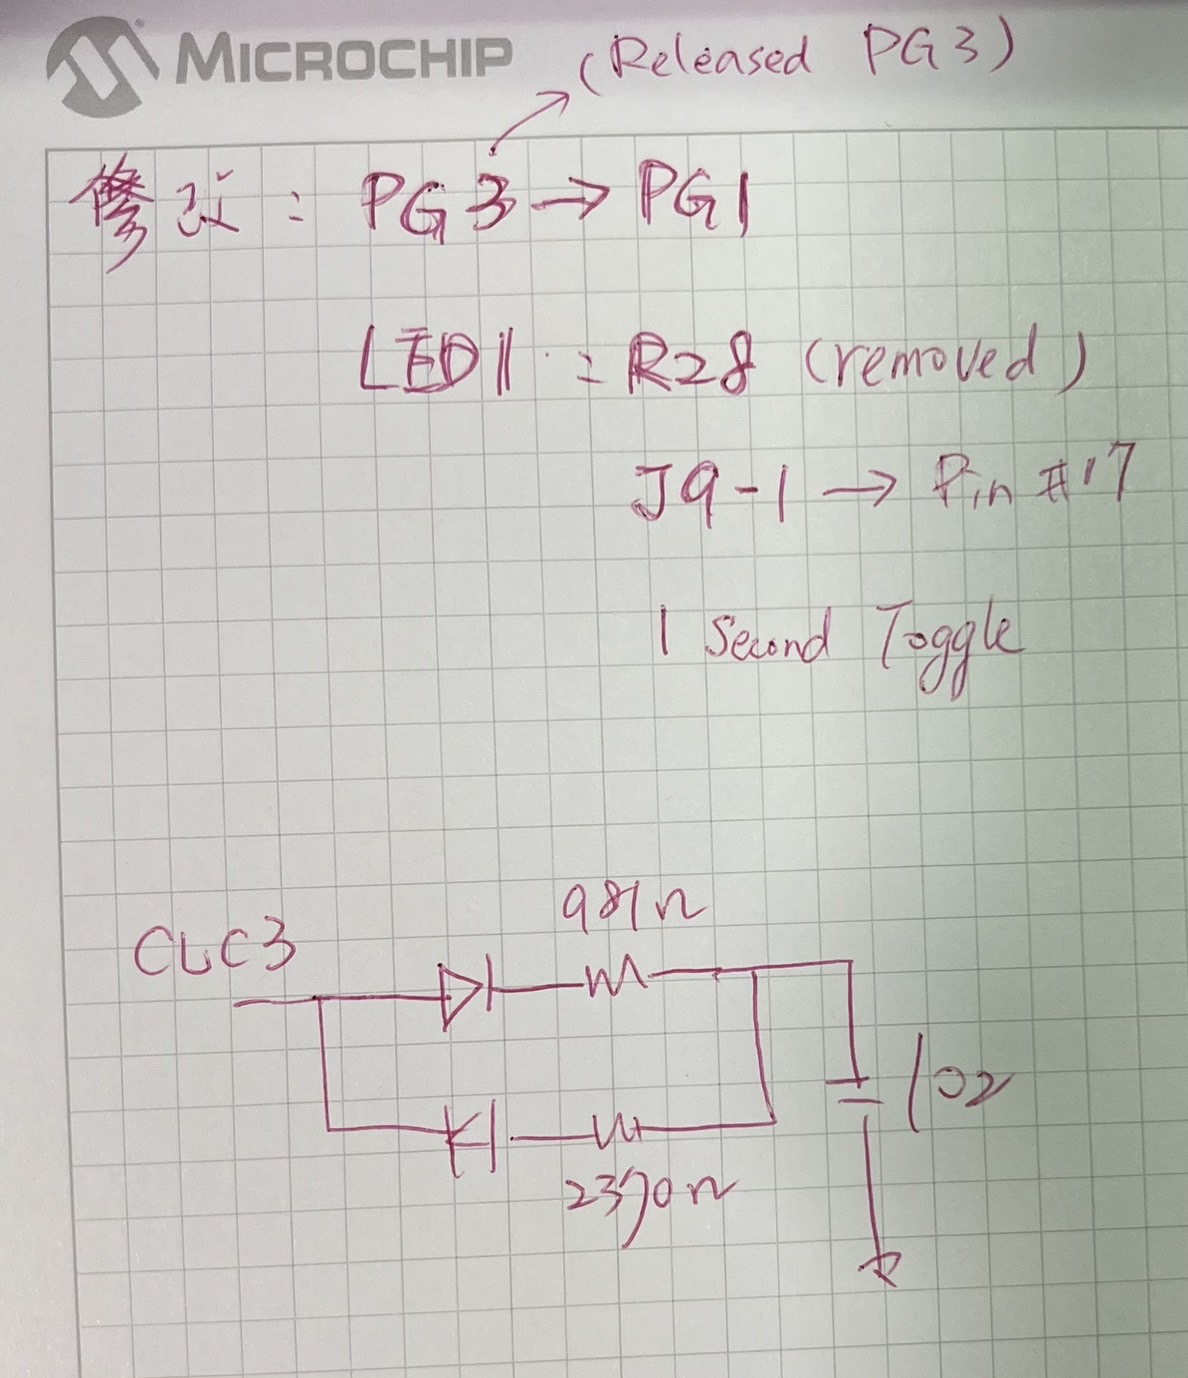 MICROCHIP
(Released PG3)
修改: PG3→PG1
LED11 : R28 (removed)
J9-1 → Pin #17
1 Second Toggle
981Ω
CLC3
102
2370Ω